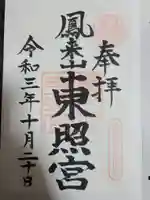 奉拝
鳳来山東照宮
令和三年十月二十日